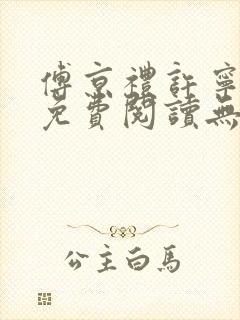 傅京禮許寧
免費閱讀無
公主白馬